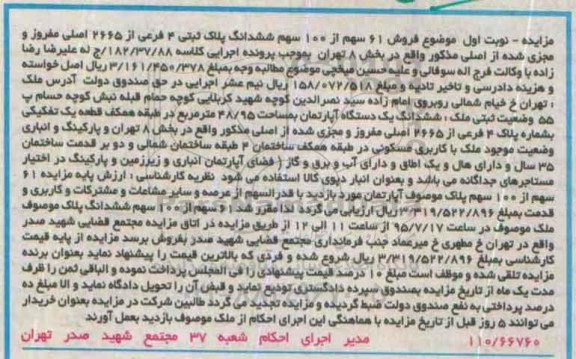 مزایده - نوبت اول موضوع فروش ۶۱ سهم از ۱۰۰ سهم ششدانگ پلاک ثبتی ۴ فرعی از ۲۶۶۵ اصلی مفروز و
مجزی شده از اصلی مذکور واقع در بخش ۸ تهران بموجب پرونده اجرایی کلاسه ۱۸۲/۳۷/۸۸/ج له علیرضا رضا
زاده با وکالت فرج اله سوفالی و علیه حسین میخچی موضوع مطالبه وجه بمبلغ ۳/۱۶۱/۴۵۰/۳۷۸ ریال اصل خواسته
و هزینه دادرسی و تاخیر تادیه و مبلغ ۱۵۸/۰۷۲/۵۱۸ ریال نیم عشر اجرایی در حق صندوق دولت آدرس ملک
: تهران خ خیام شمالی روبروی امام زاده سید نصرالدین کوچه شهید کربلایی کوچه حمام قبله نبش کوچه حسام پ
۵۵ وضعیت ثبتی ملک : ششدانگ یک دستگاه آپارتمان بمساحت ۴۸/۹۵ مترمربع در طبقه همکف قطعه یک تفکیکی
بشماره پلاک ۴ فرعی از ۲۶۶۵ اصلی مفروز و مجزی شده از اصلی مذکور واقع در بخش ۸ تهران و پارکینگ و انباری
وضعیت موجود ملک با کاربری مسکونی در طبقه همکف ساختمان ۴ طبقه ساختمان شمالی و دو بر قدمت ساختمان
۳۵ سال و دارای هال و یک اطاق و دارای آب و برق و گاز ( فضای آپارتمان انباری و زیرزمین و پارکینگ در اختیار
مستاجرهای جداگانه می باشد و بعنوان انبار دپوی کالا استفاده می شود نظریه کارشناسی : ارزش پایه مزایده ۶۱
سهم از ۱۰۰ سهم پلاک موصوف آپارتمان مورد بازدید با قدرالسهم از عرصه و سایر مشاعات و مشترکات و کاربری و
قدمت بمبلغ ۳/۳۱۹/۵۲۲/۸۹۶ ریال ارزیابی می گردد لذا مقرر شد ۶۱ سهم از ۱۰۰ سهم ششدانگ پلاک موصوف
ملک موصوف در ساعت ۹۵/۷/۱۷ از ساعت ۱۱ الی ۱۲ از طریق مزایده در اتاق مزایده مجتمع قضایی شهید صدر
واقع در تهران خ مطهری خ میرعماد جنب فرمانداری مجتمع قضایی شهید صدر بفروش برسد مزایده از پایه قیمت
کارشناسی بمبلغ ۳/۳۱۹/۵۲۲/۸۹۶ ریال شروع شده و فردی که بالاترین قیمت را پیشنهاد نماید بعنوان برنده
مزایده تلقی شده و موظف است مبلغ ۱۰ درصد قیمت پیشنهادی را فی المجلس پرداخت نموده و الباقی ثمن را ظرف
مدت یک ماه از تاریخ مزایده بصندوق سپرده دادگستری تودیع نماید و قبض آن را تحویل دادگاه نماید و الا مبلغ ده
درصد پرداختی به نفع صندوق دولت ضبط گردیده و مزایده تجدید می گردد طالبین شرکت در مزایده بعنوان خریدار
می توانند ۵ روز قبل از تاریخ مزایده با هماهنگی این اجرای احکام از ملک موصوف بازدید بعمل آورند
۱۱۰/۶۶۷۶۰ مدیر اجرای احکام شعبه ۳۷ مجتمع شهید صدر تهران